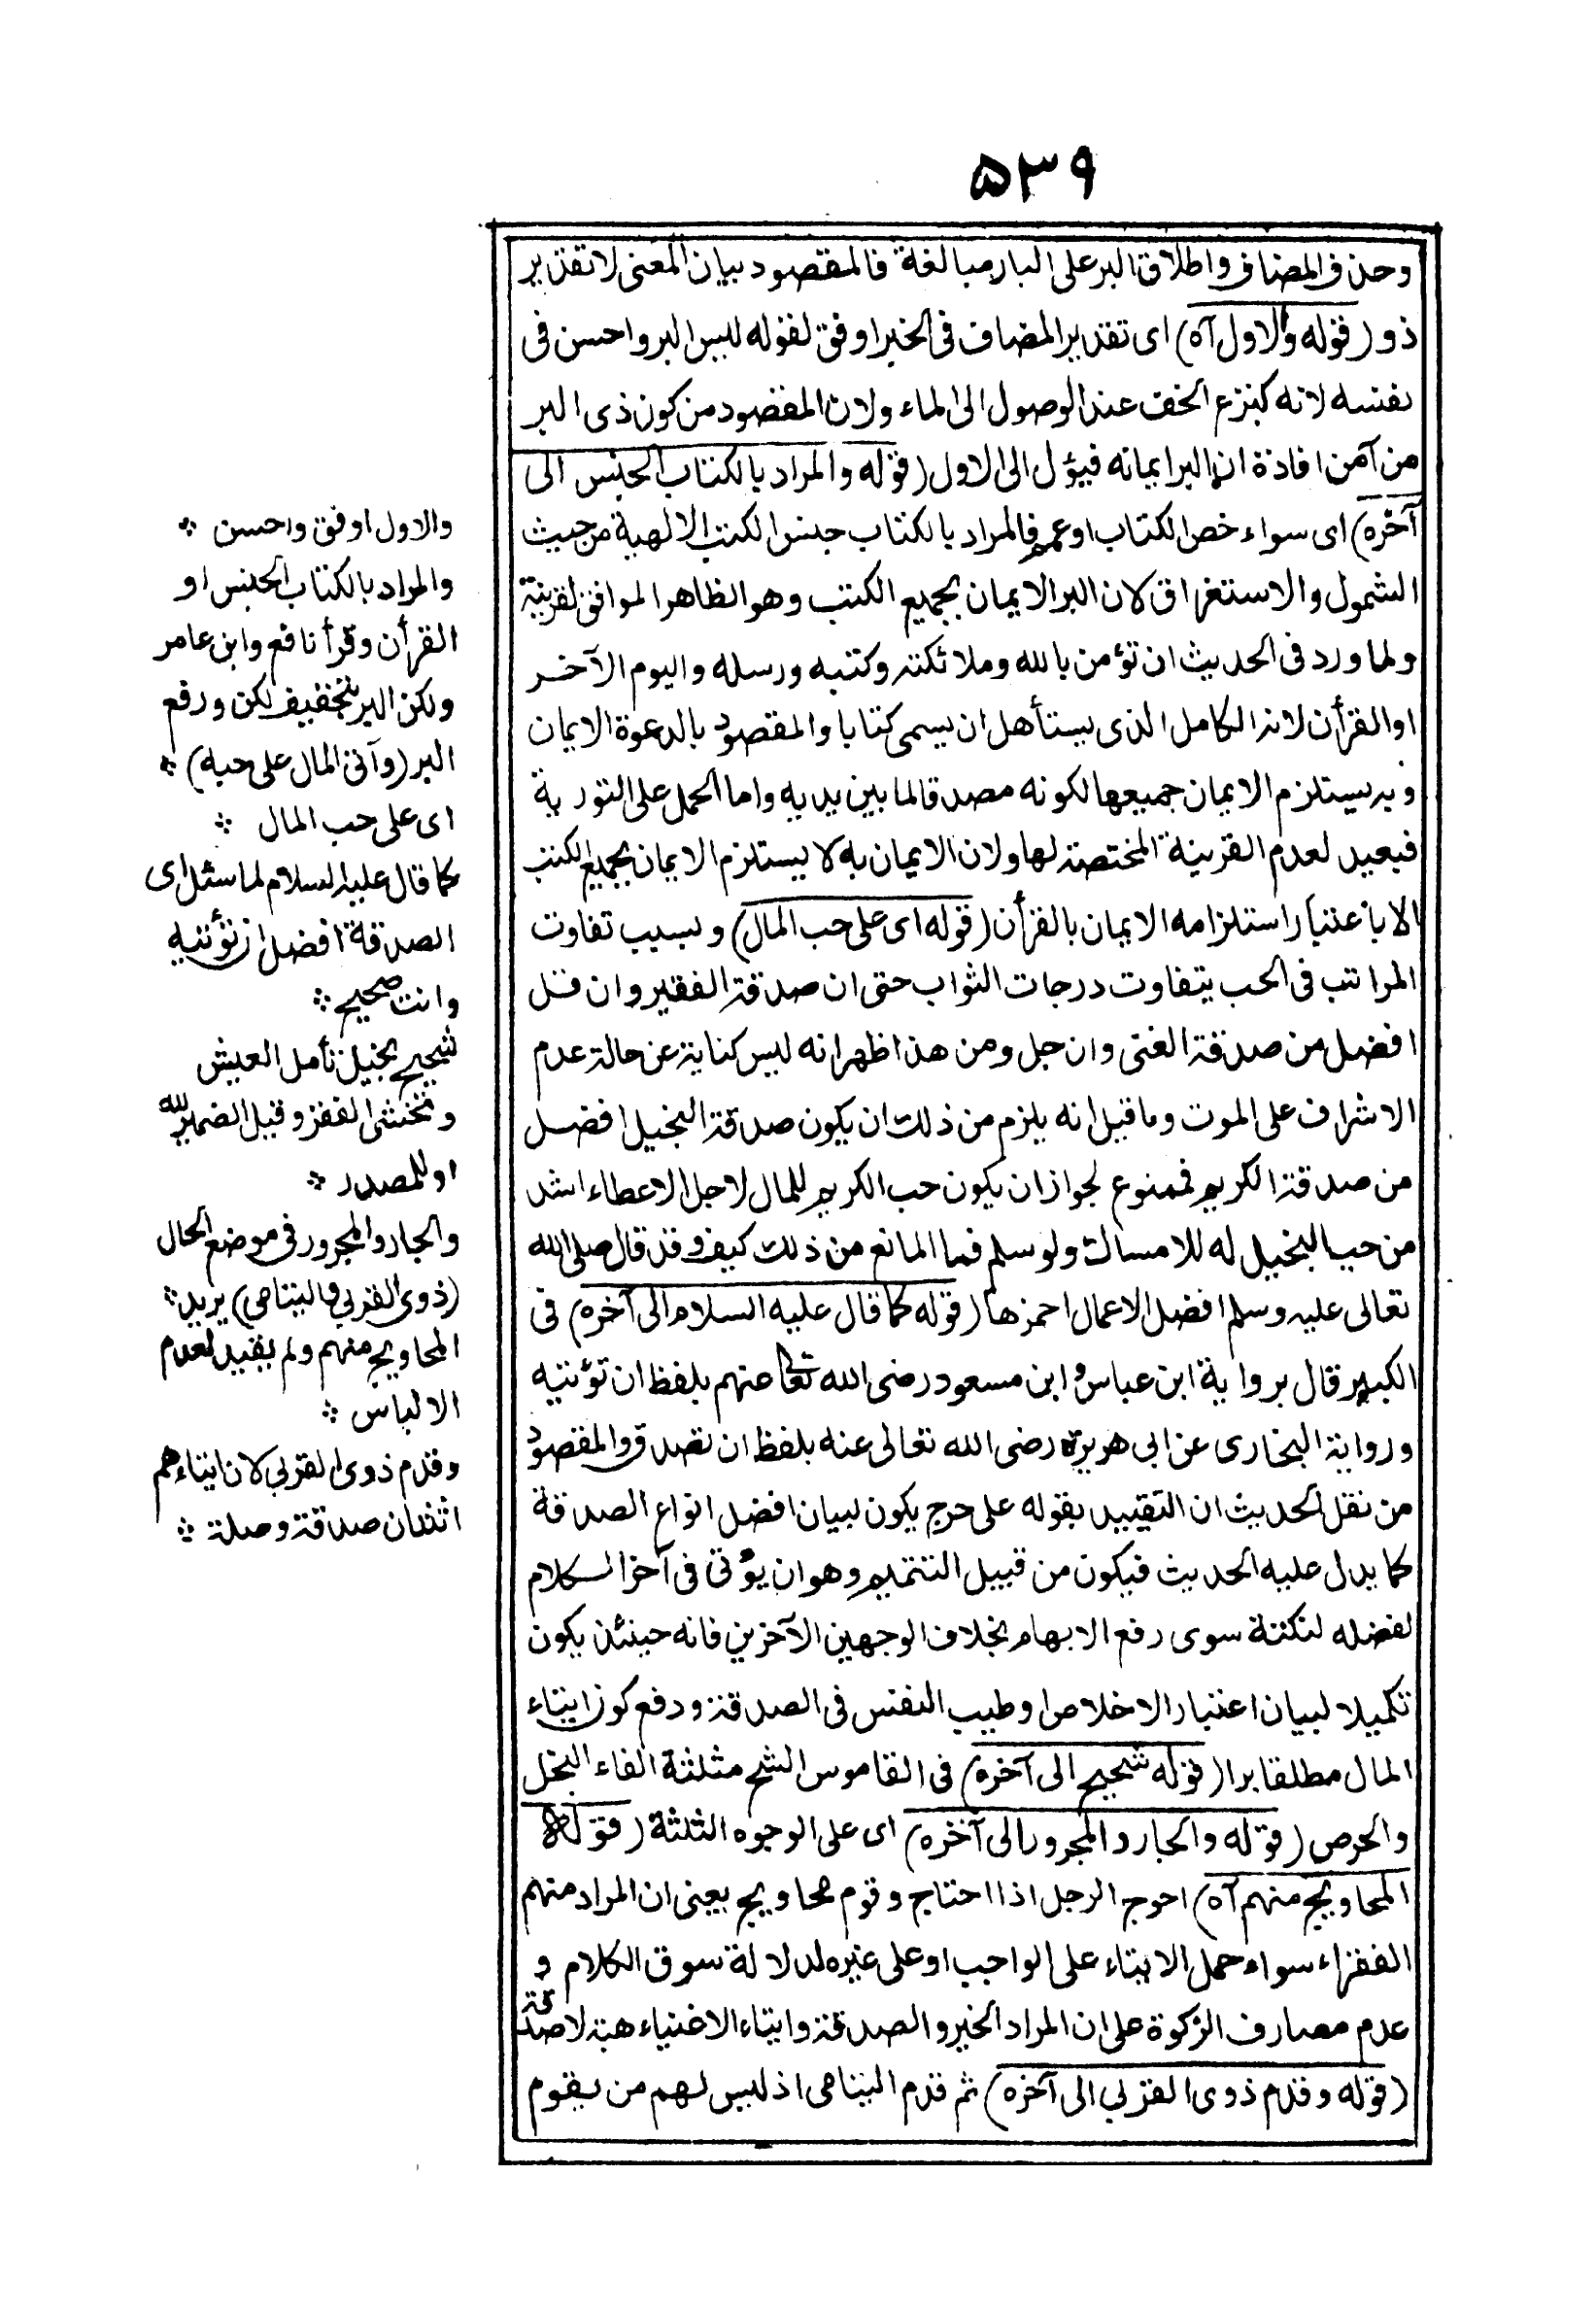 ٥٣٩
وحذف المضاف واطلاق البر على البار مبالغة فالمقصود بيان المعنى لا تقدير
ذو (قوله والاول آه) اى تقدير المضاف فى الخبر اوفق لقوله ليس البر واحسن فى
نفسه لانه كنزع الخف عند الوصول الى الماء ولان المقصود من كون ذى البر
من آمن افادة ان البر ايمانه فيؤل الى الاول (قوله والمراد بالكتاب الجنس الى
آخره) اى سواء خص الكتاب او عمم فالمراد بالكتاب جنس الكتب الالهية من حيث
الشمول والاستغراق لان البر الايمان بجميع الكتب وهو الظاهر الموافق لقرينته
ولما ورد فى الحديث ان تؤمن بالله وملائكته وكتبه ورسله واليوم الآخر
او القرأن لانه الكامل الذى يستأهل ان يسمى كتابا والمقصود بالدعوة الايمان
وبه يستلزم الايمان جميعها لكونه مصدقا لما بين يديه واما الحمل على التورية
فبعيد لعدم القرينة المختصة لها ولان الايمان به لا يستلزم الايمان بجميع الكتب
الا باعتبار استلزامه الايمان بالقرأن (قوله اى على حب المال) وبسبب تفاوت
المراتب فى الحب يتفاوت درجات الثواب حتى ان صدقة الفقير وان قل
افضل من صدقة الغنى وان جل ومن هذا ظهر انه ليس كناية عن حالة عدم
الاشراف على الموت وما قيل انه يلزم من ذلك ان يكون صدقة البخيل افضل
من صدقة الكريم فممنوع لجواز ان يكون حب الكريم للمال لاجل الاعطاء اشد
من حب البخيل له للامساك ولو سلم فما المانع من ذلك كيف وقد قال صلى الله
تعالى عليه وسلم افضل الاعمال احمزها (قوله كما قال عليه السلام الى آخره) فى
الكبير قال برواية ابن عباس وابن مسعود رضى الله تعا عنهم بلفظ ان تؤتيه
ورواية البخارى عن ابى هريرة رضى الله تعالى عنه بلفظ ان تصدق والمقصود
من نقل الحديث ان التقييد بقوله على حرج يكون لبيان افضل انواع الصدقة
كما يدل عليه الحديث فيكون من قبيل التتميم وهو ان يؤتى فى آخر الكلام
لفضله لنكتة سوى رفع الابهام بخلاف الوجهين الآخرين فانه حينئذ يكون
تكميلا لبيان اعتبار الاخلاص او طيب النفس فى الصدقة ودفع كون ايتاء
المال مطلقا برا (قوله شحيح الى آخره) فى القاموس الشح مثلثة الفاء البخل
والحرص (قوله والجار والمجرور الى آخره) اى على الوجوه الثلثة (قوله
المحاويج منهم آه) احوج الرجل اذا احتاج وقوم محاويج يعنى ان المراد منهم
الفقراء سواء حمل الايتاء على الواجب او على غيره لدلالة سوق الكلام و
عدم مصارف الزكوة على ان المراد الخير والصدقة وايتاء الاغنياء هبة لا صدقة
(قوله وقدم ذوى القربى الى آخره) ثم قدم اليتامى اذ ليس لهم من يقوم
والاول اوفق واحسن
والمراد بالكتاب الجنس او
القرأن وقرأ نافع وابن عامر
ولكن البر بتخفيف لكن ورفع
البر (وآتى المال على حبه)
اى على حب المال
كما قال عليه السلام لما سئل اى
الصدقة افضل ان تؤتيه
وانت صحيح
شحيح بخيل تأمل العيش
وتخشى الفقر وقيل الضمير لله
او للمصدر
والجار والمجرور فى موضع الحال
(ذوى القربى واليتامى) يريد
المحاويج منهم ولم يقيد لعدم
الالباس
وقدم ذوى القربى لان ايتاءهم
اثنتان صدقة وصلة